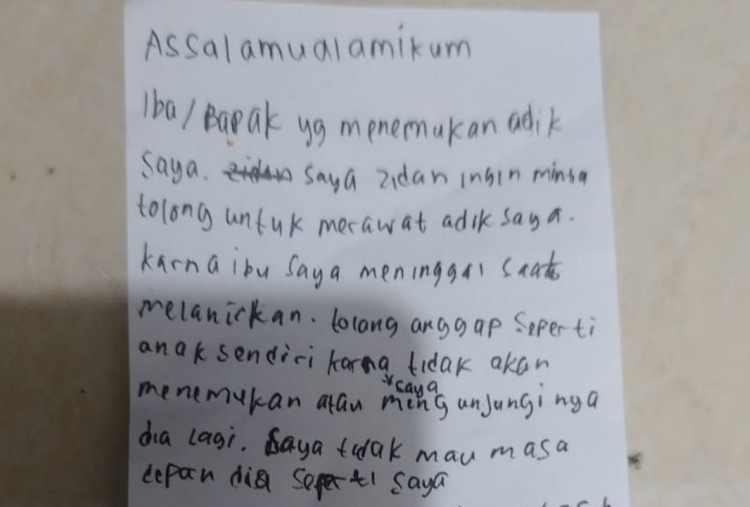 Assalamualamikum
Iba/Bapak yg menemukan adik
saya. zidan saya zidan ingin minta
tolong untuk merawat adik saya.
karna ibu saya meninggal saat
melanirkan. tolong anggap seperti
anak sendiri karna tidak akan
menemukan atau *saya mengunjungi nya
dia lagi. saya tidak mau masa
depan dia seperti saya